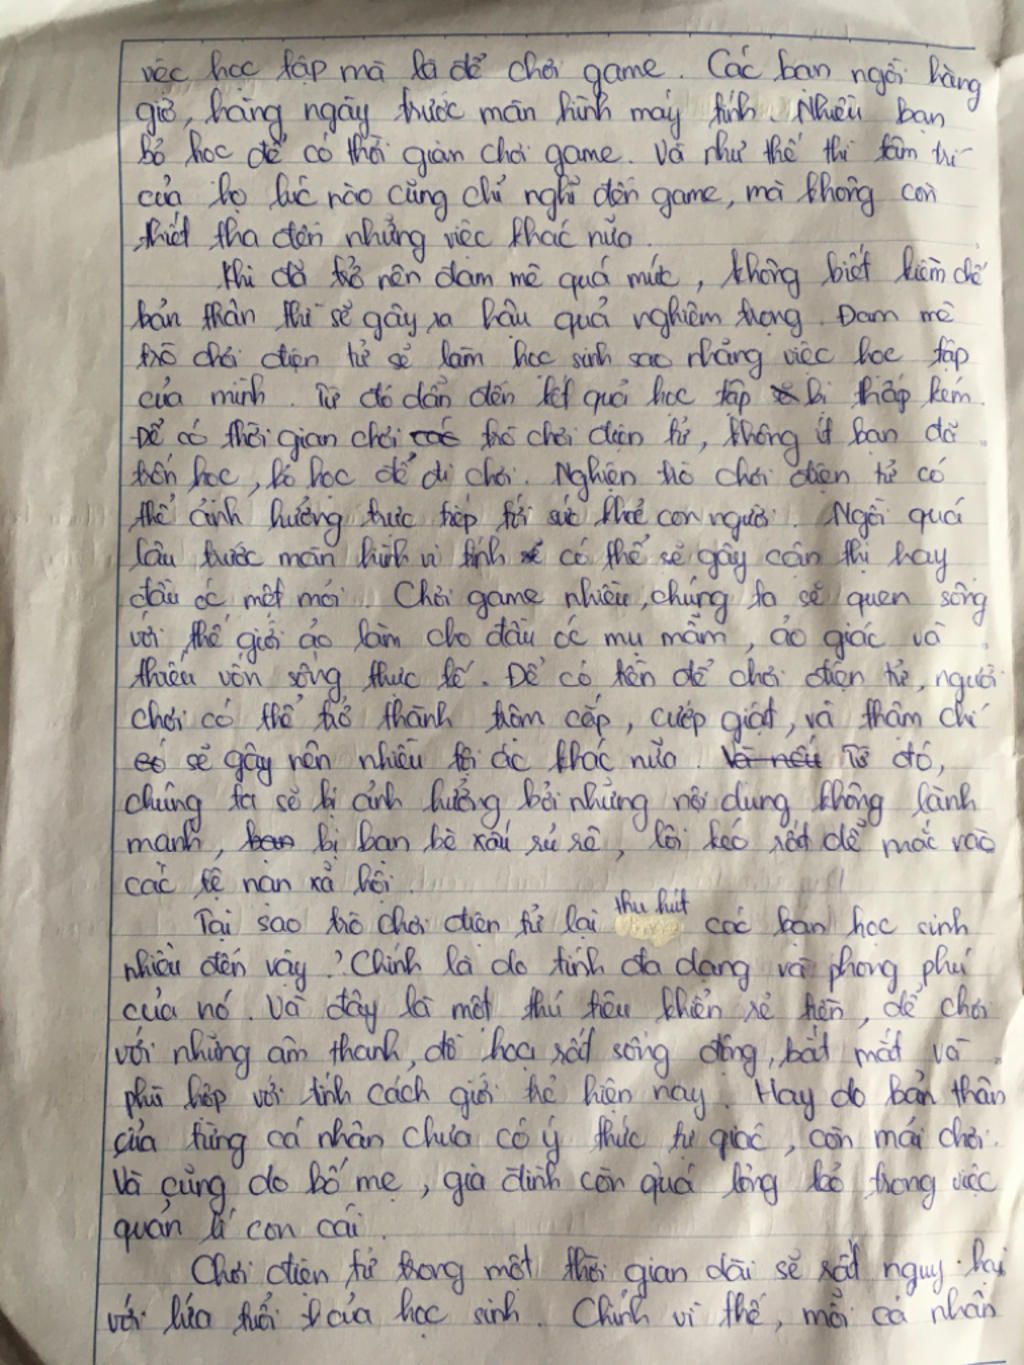 việc học tập mà là để chơi game. Các bạn ngồi hàng
giờ, hàng ngày trước màn hình máy tính. Nhiều bạn
bỏ học để có thời gian chơi game. Và như thế thì tâm trí
của họ lúc nào cũng chỉ nghĩ đến game, mà không còn
thiết tha đến những việc khác nữa.
Khi đã trở nên đam mê quá mức, không biết kiềm chế
bản thân thì sẽ gây ra hậu quả nghiêm trọng. Đam mê
trò chơi điện tử sẽ làm học sinh sao nhãng việc học tập
của mình. Từ đó dẫn đến kết quả học tập bị thấp kém.
Để có thời gian chơi các trò chơi điện tử, không ít bạn đã
trốn học, bỏ học để đi chơi. Nghiện trò chơi điện tử có
thể ảnh hưởng trực tiếp tới sức khoẻ con người. Ngồi quá
lâu trước màn hình vi tính có thể sẽ gây cận thị hay
đầu óc mệt mỏi. Chơi game nhiều, chúng ta sẽ quen sống
với thế giới ảo làm cho đầu óc mụ mẫm, ảo giác và
thiếu vốn sống thực tế. Để có tiền để chơi điện tử, người
chơi có thể trở thành trộm cắp, cướp giật, và thậm chí
có sẽ gây nên nhiều tội ác khác nữa. Và nếu Từ đó,
chúng ta sẽ bị ảnh hưởng bởi những nội dung không lành
mạnh, bạn bị bạn bè xấu rủ rê, lôi kéo rất dễ mắc vào
các tệ nạn xã hội.
Tại sao trò chơi điện tử lại thu hút các bạn học sinh
nhiều đến vậy? Chính là do tính đa dạng và phong phú
của nó. Và đây là một thú tiêu khiển rẻ tiền, dễ chơi
với những âm thanh, đồ hoạ rất sống động, bắt mắt và
phù hợp với tính cách giới trẻ hiện nay. Hay do bản thân
của từng cá nhân chưa có ý thức tự giác, còn mải chơi.
Và cũng do bố mẹ, gia đình còn quá lỏng lẻo trong việc
quản lí con cái.
Chơi điện tử trong một thời gian dài sẽ rất nguy hại
với lứa tuổi của học sinh. Chính vì thế, mỗi cá nhân